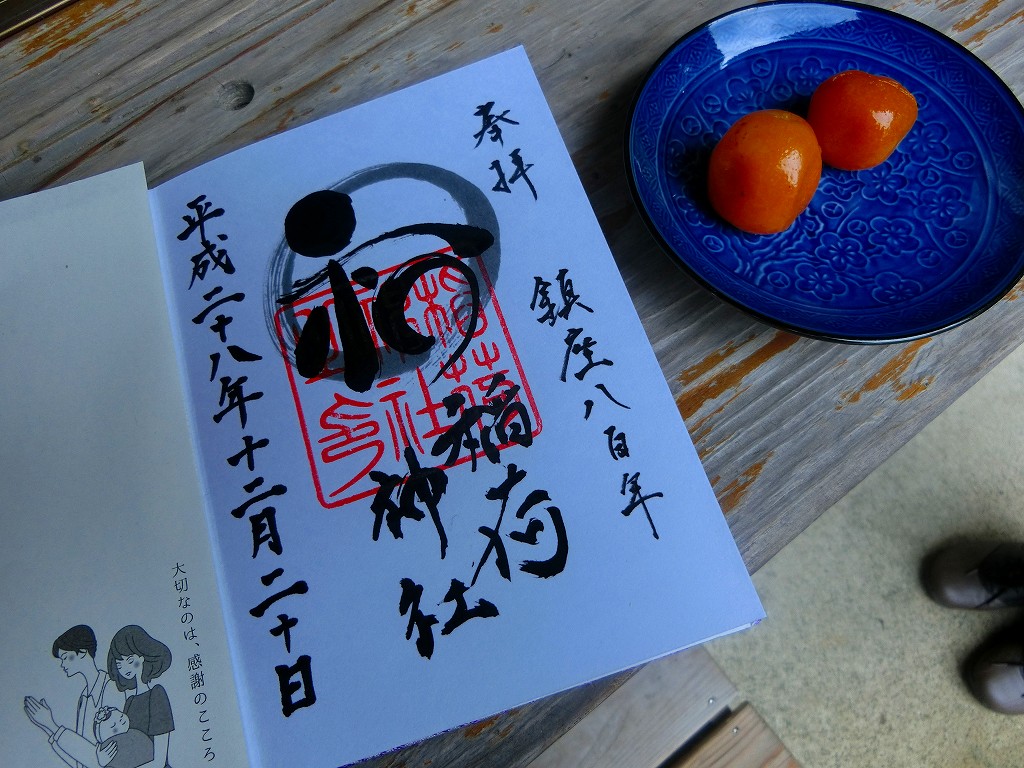 奉拝
鎮座八百年
稲荷
神社
平成二十八年十二月二十日
大切なのは、感謝のこころ